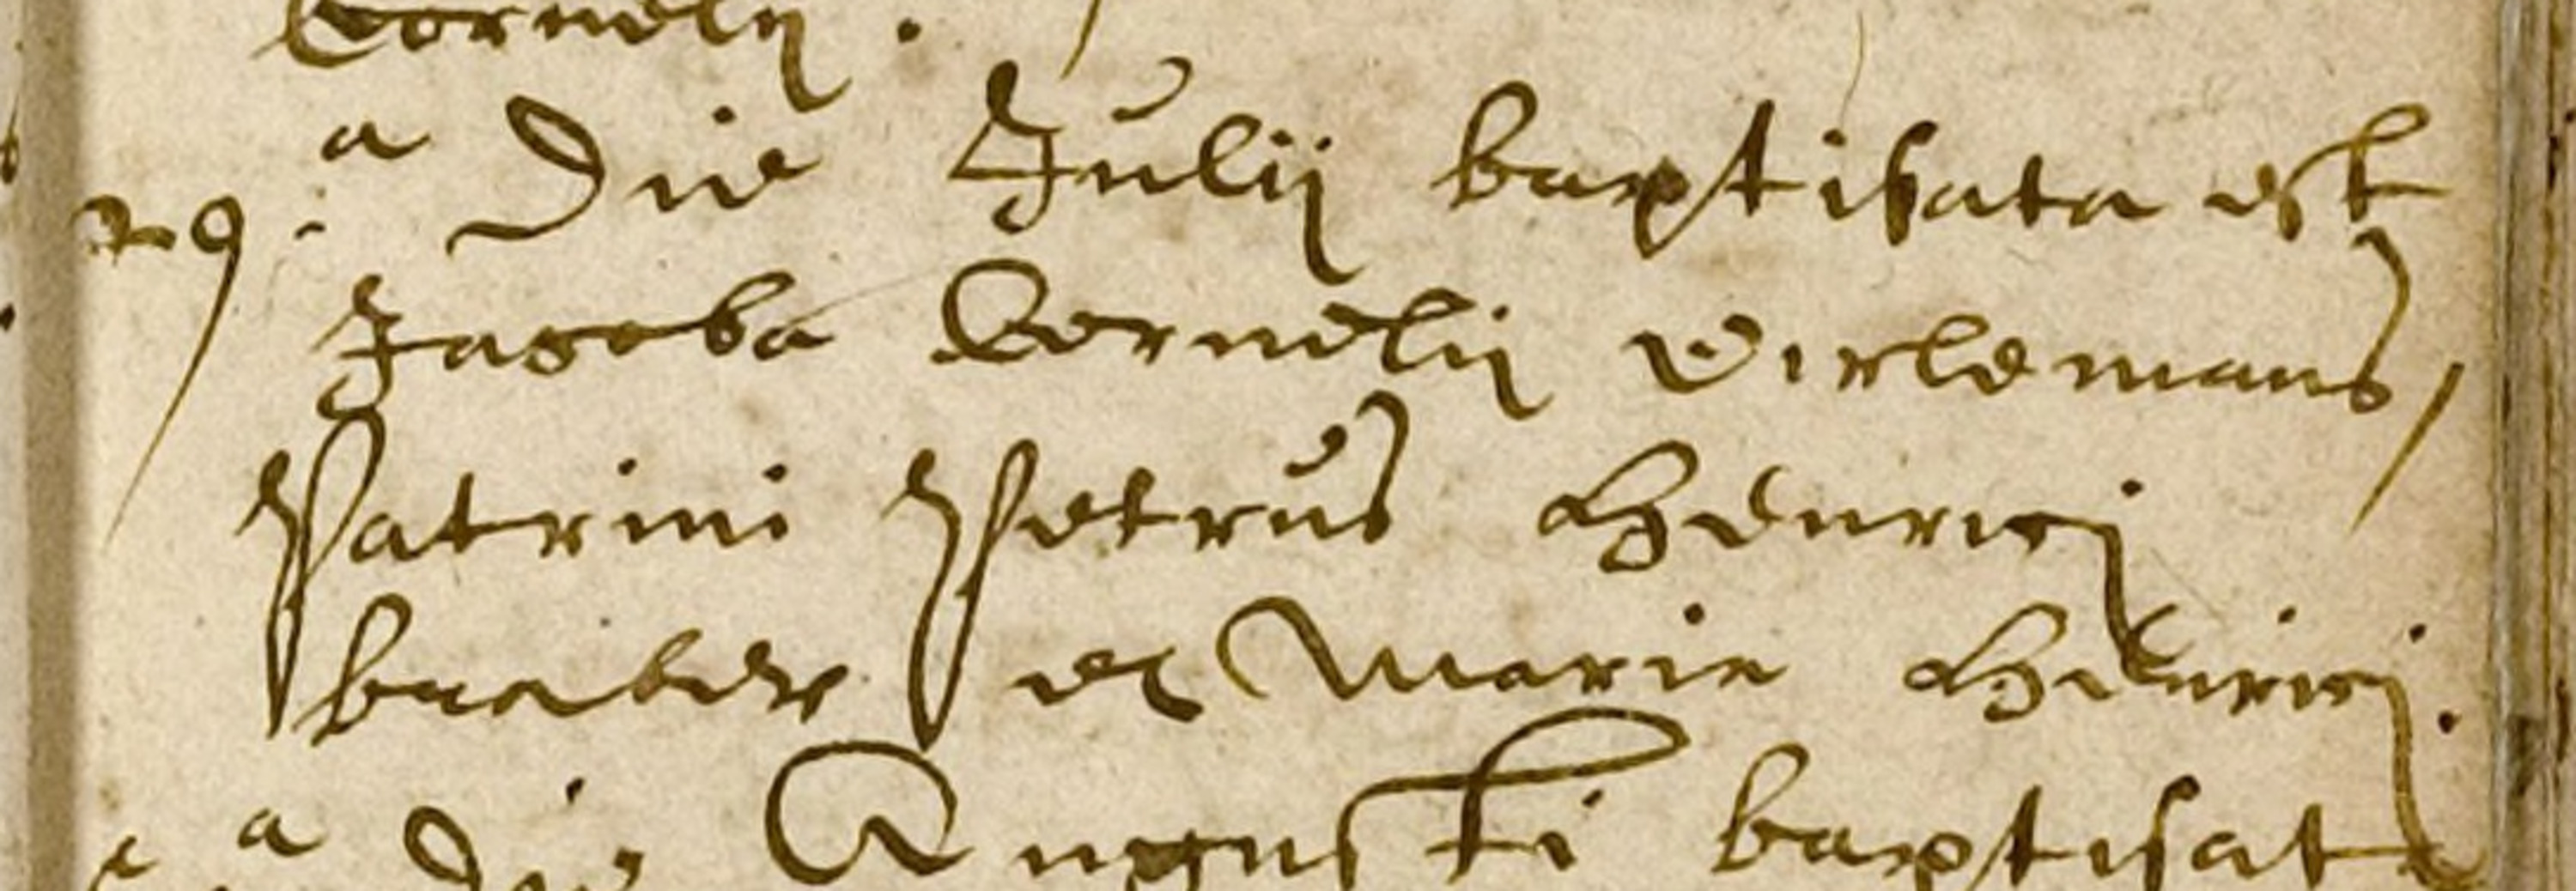 Cornelij .
29.a Die Julij baptisata est
Jacoba Cornelij Virlemans
Patrini Petrus Henrici
backer et Marie Henrici.
a die Augusti baptisata